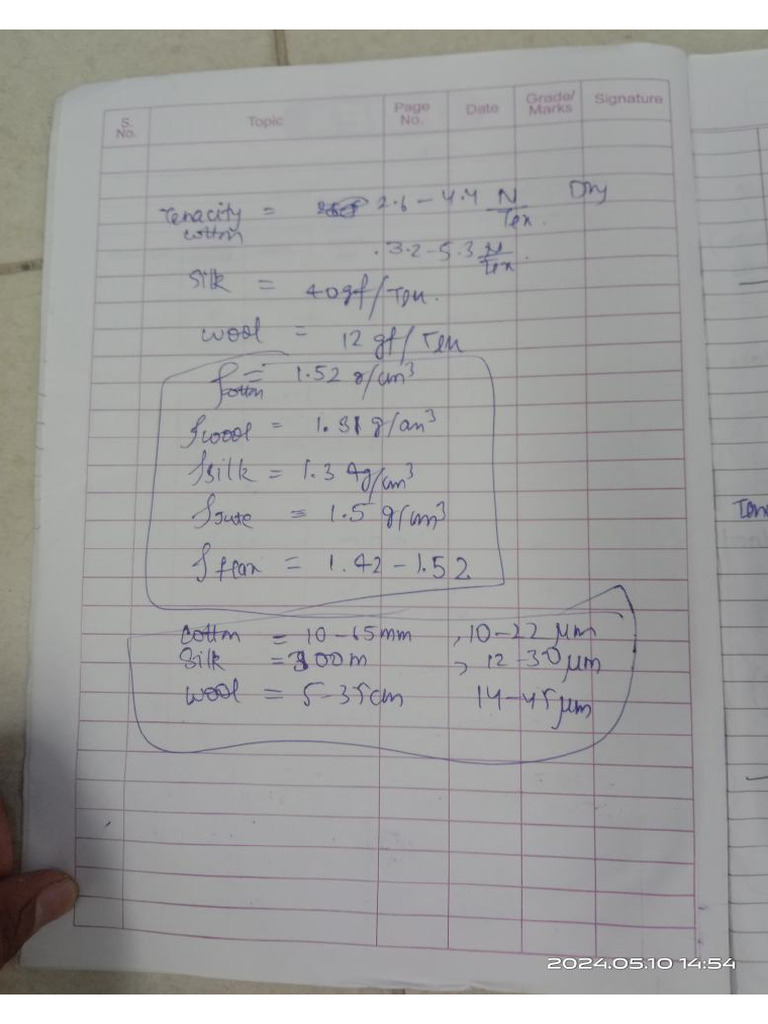 S. No. Topic Page No. Date Grade/Marks Signature
Tenacity cotton = 2.6 - 4.4 N/Tex. Dry
.3.2-5.3 N/Tex.
Silk = 40gf/Tex.
wool = 12 gf/Tex
ρcotton = 1.52 g/cm³
ρwool = 1.31 g/cm³
ρsilk = 1.34g/cm³
ρJute = 1.5 g/cm³
ρflax = 1.42 - 1.52
cotton = 10-65mm , 10-22 μm
Silk = 800m , 12-30 μm
wool = 5-35cm 14-45 μm
2024.05.10 14:54